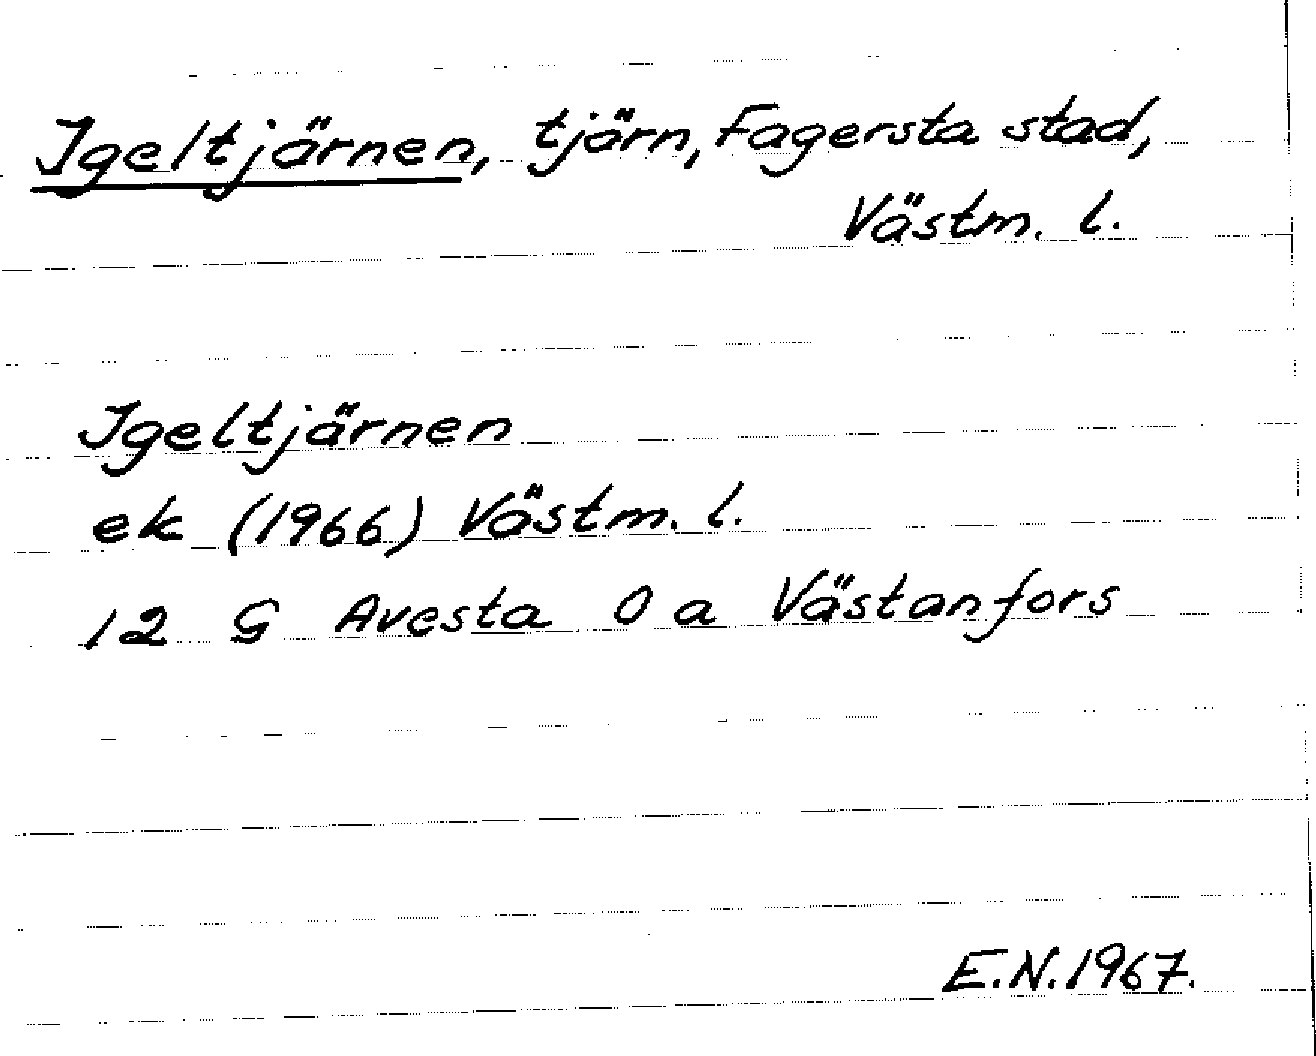 Igeltjärnen, tjärn, Fagersta stad,
Västm. l.
Igeltjärnen
ek (1966) Västm. l.
12 G Avesta 0 a Västanfors
E.N.1967.